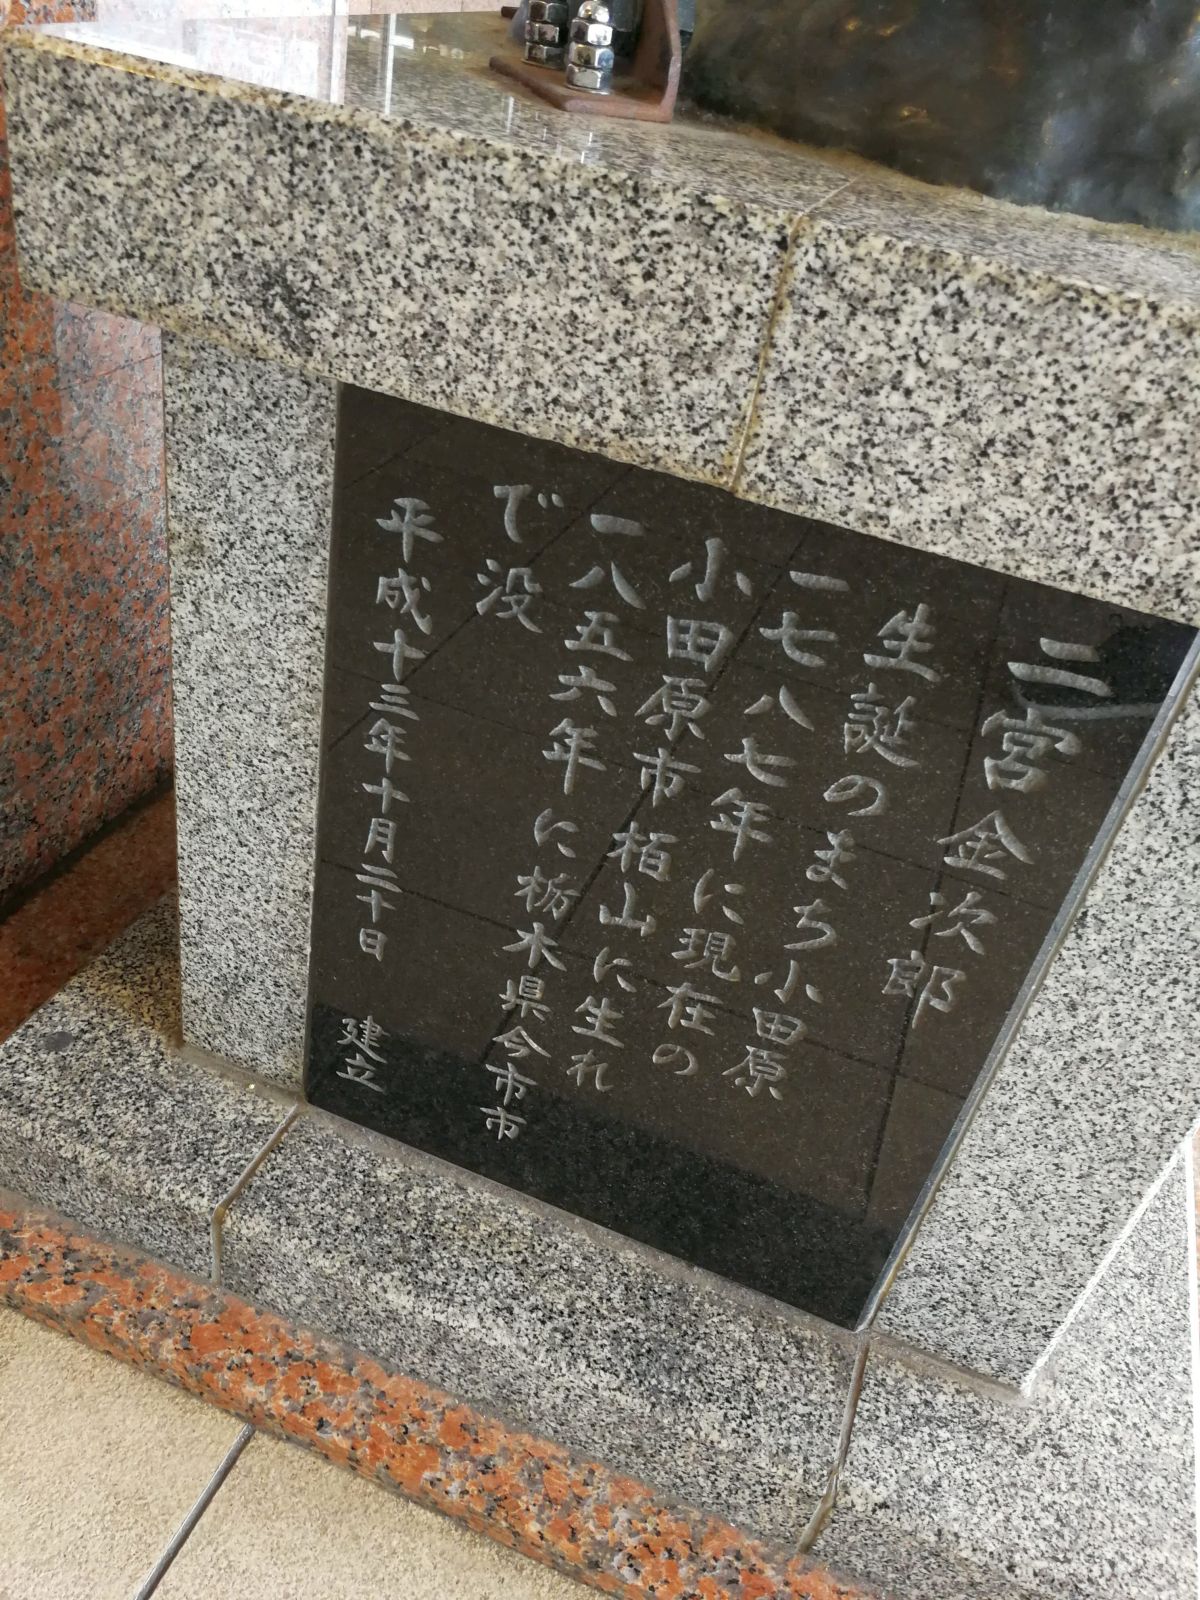 二宮金次郎
生誕のまち小田原
一七八七年に現在の
小田原市栢山に生れ
一八五六年に栃木県今市市
で没
平成十三年十月二十日 建立